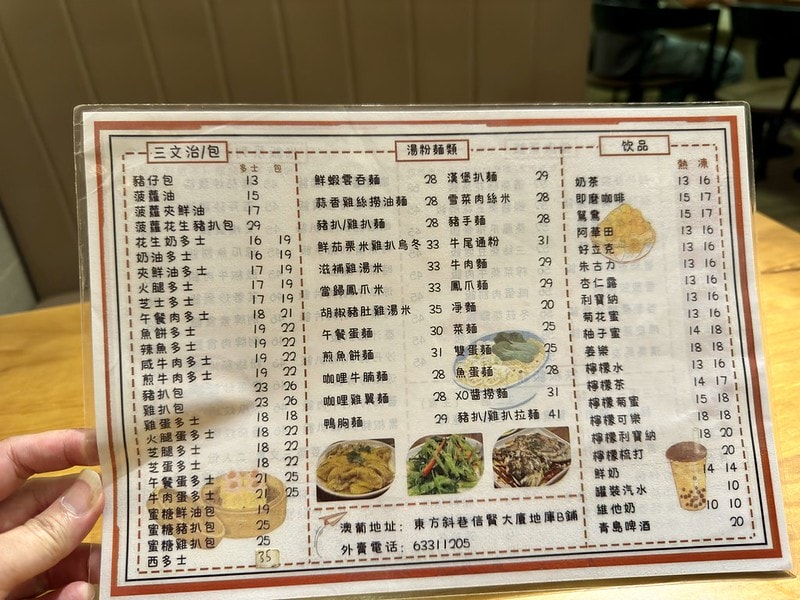 三文治/包
多士 包
豬仔包 13
菠蘿油 15
菠蘿夾鮮油 17
菠蘿花生豬扒包 29
花生奶多士 16 19
奶油多士 16 19
夾鮮油多士 17 19
火腿多士 17 19
芝士多士 17 19
午餐肉多士 18 21
魚餅多士 19 22
辣魚多士 19 22
咸牛肉多士 19 22
煎牛肉多士 19 22
豬扒包 23 26
雞扒包 23 26
雞蛋多士 18 18
火腿蛋多士 18 22
芝腿多士 18 22
芝蛋多士 18 22
午餐蛋多士 21 25
牛肉蛋多士 21 25
蜜糖鮮油包 19
蜜糖豬扒包 25
蜜糖雞扒包 25
西多士 35
湯粉麵類
鮮蝦雲吞麵 28
蒜香雞絲撈油麵 28
豬扒/雞扒麵 28
鮮茄粟米雞扒烏冬 33
滋補雞湯米 33
當歸鳳爪米 33
胡椒豬肚雞湯米 35
午餐蛋麵 30
煎魚餅麵 31
咖哩牛腩麵 28
咖哩雞翼麵 28
鴨胸麵 29
漢堡扒麵 29
雪菜肉絲米 28
豬手麵 28
牛尾通粉 31
牛肉麵 29
鳳爪麵 29
淨麵 20
菜麵 25
雙蛋麵 25
魚蛋麵 28
XO醬撈麵 31
豬扒/雞扒拉麵 41
澳葡地址： 東方斜巷信賢大廈地庫B鋪
外賣電話： 63311205
飲品
熱 凍
奶茶 13 16
即磨咖啡 15 17
鴛鴦 15 17
阿華田 13 16
好立克 13 16
朱古力 13 16
杏仁露 13 16
利賓納 13 16
菊花蜜 13 16
柚子蜜 14 18
姜樂 18 18
檸檬水 13 16
檸檬茶 14 17
檸檬菊蜜 15 18
檸檬可樂 18 18
檸檬利賓納 18 20
檸檬梳打 20
鮮奶 14 14
罐裝汽水 10
維他奶 10 10
青島啤酒 20